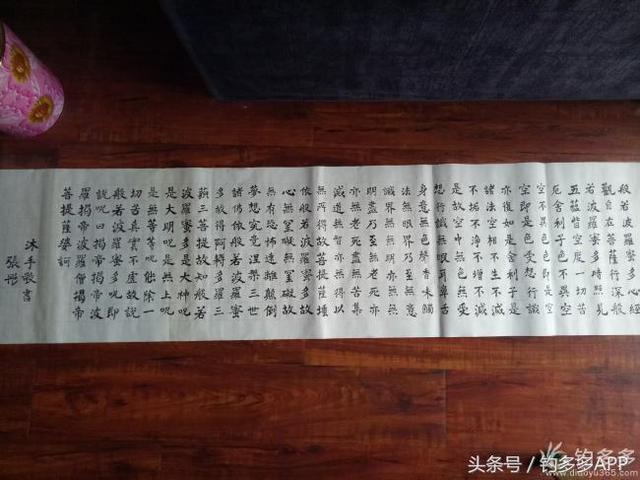 般若波羅蜜多心經
觀自在菩薩行深般
若波羅蜜多時照見
五蘊皆空度一切苦
厄舍利子色不異空
空不異色色即是空
空即是色受想行識
亦復如是舍利子是
諸法空相不生不滅
不垢不淨不增不減
是故空中無色無受
想行識無眼耳鼻舌
身意無色聲香味觸
法無眼界乃至無意
識界無無明亦無無
明盡乃至無老死亦
亦無老死盡無苦集
滅道無智亦無得以
無所得故菩提薩埵
依般若波羅蜜多故
心無罣礙無罣礙故
無有恐怖遠離顛倒
夢想究竟涅槃三世
諸佛依般若波羅蜜
多故得阿耨多羅三
藐三菩提故知般若
波羅蜜多是大神呪
是大明呪是無上呪
是無等等呪能除一
切苦真實不虛故説
般若波羅蜜多呪即
説呪曰揭帝揭帝波
羅揭帝波羅僧揭帝
菩提薩婆訶
沐手敬書
張彤
钓多多
www.diaoyu365.com
头条号 / 钓多多APP